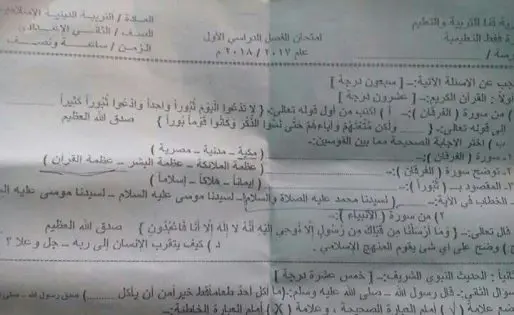 ية قنا التربية والتعليم
المادة / التربية الدينية الإسلامية
ة قفط التعليمية
امتحان الفصل الدراسي الأول
الصف / الثاني الإعدادي
رسة /
عام ٢٠١٧ / ٢٠١٨ م
الزمن / ساعة ونصف
جب عن الأسئلة الآتية:- [ سبعون درجة ]
أولاً : القرآن الكريم:- [ عشرون درجة ]
١) من سورة ( الفرقان ):- أ ) اكتب من أول قوله تعالى:- { لا تدعوا اليوم ثبوراً واحداً وادعوا ثبوراً كثيراً
إلى قوله تعالى: ولكن متعتهم وآباءهم حتى نسوا الذكر وكانوا قوماً بوراً } صدق الله العظيم
ب ) اختر الإجابة الصحيحة مما بين القوسين:-
١- سورة ( الفرقان ): ( مكية - مدنية - مصرية )
٢- توضح سورة ( الفرقان ): ( عظمة الملائكة - عظمة البشر - عظمة القرآن )
٣- المقصود بـ ( ثبوراً ): ( إيماناً - هلاكاً - إسلاماً )
- الخطاب في الآية: ( لسيدنا محمد عليه الصلاة والسلام - لسيدنا موسى عليه السلام - لسيدنا موسى عليه الس
٢) من سورة ( الأنبياء ):-
قال تعالى:- { وما أرسلنا من قبلك من رسول إلا نوحي إليه أنه لا إله إلا أنا فاعبدون } صدق الله العظيم
ج ) وضح على أي شيء يقوم المنهج الإسلامي . د ) كيف يتقرب الإنسان إلى ربه - جل وعلا ؟
ثانياً : الحديث النبوي الشريف:- [ خمس عشرة درجة ]
سؤال الثاني:- قال رسول الله - صلى الله عليه وسلم:- (ما أكل أحد طعاما قط خيراً من أن يأكل ) صدق رسول الله - صلى
ضع علامة ( √ ) أمام العبارة الصحيحة ، وعلامة ( X ) أمام العبارة الخاطئة:-